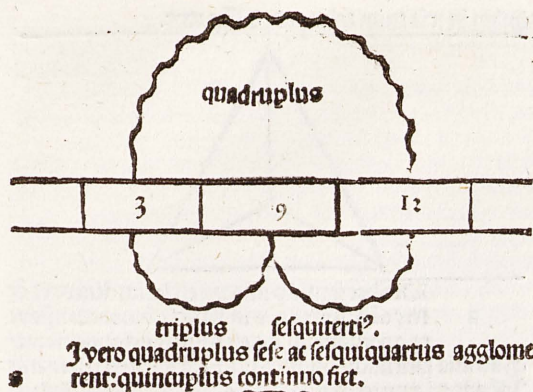 quadruplus
3 9 12
triplus sesquiterti⁹.
I vero quadruplus sese ac sesquiquartus agglome
rent: quincuplus continuo fiet.